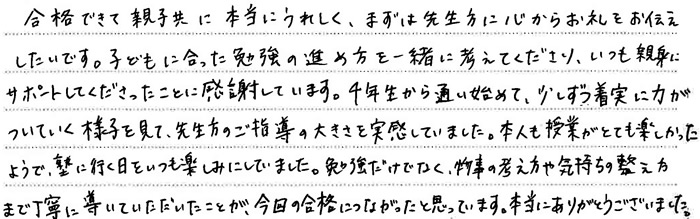 合格できて親子共に本当にうれしく、まずは先生方に心からお礼をお伝え
したいです。子どもに合った勉強の進め方を一緒に考えてくださり、いつも親身に
サポートしてくださったことに感謝しています。4年生から通い始めて、少しずつ着実に力が
ついていく様子を見て、先生方のご指導の大きさを実感していました。本人も授業がとても楽しかった
ようで、塾に行く日をいつも楽しみにしていました。勉強だけでなく、物事の考え方や気持ちの整え方
まで丁寧に導いていただいたことが、今回の合格につながったと思っています。本当にありがとうございました。